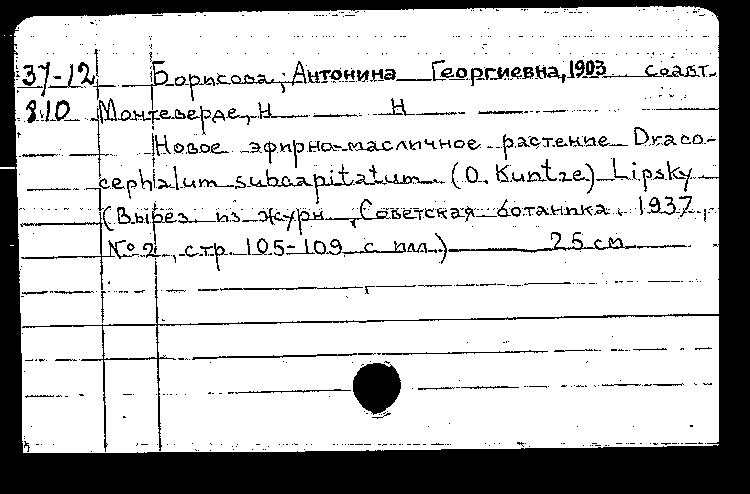 37-12 Борисова, Антонина Георгиевна, 1903 соавт.
810 Монтеверде, Н Н
Новое эфирно-масличное растение Draco-
cephalum subcapitatum (O. Kuntze) Lipsky
(Вырез. из журн „Советская ботаника. 1937,
№ 2, стр. 105-109 с илл.) 25 см